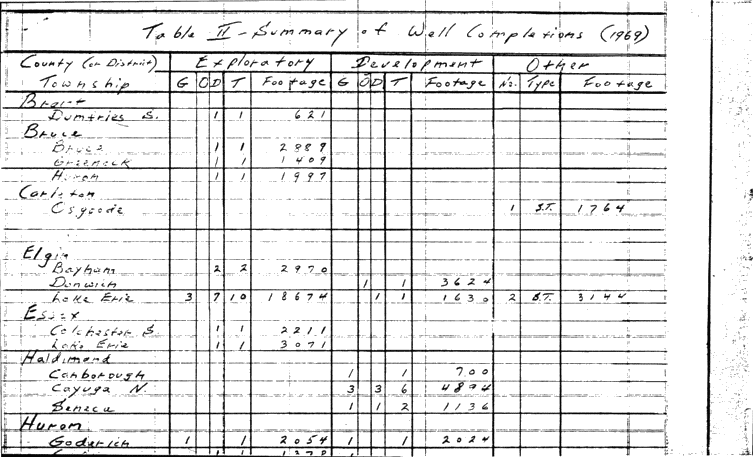 Table II - Summary of Well Completions (1969)
County (or District) Exploratory Development Other
Township G O D T Footage G O D T Footage No. Type Footage
Brant
Dumfries S. 1 1 621
Bruce
Bruce 1 1
Greenock 1 1 1409
Huron 1 1 1997
Carleton
Osgoode 1 S.T. 1764
Elgin
Bayham 2 2 2970
Dunwich 1 1 3624
Lake Erie 3 7 10 18674 1 1 1630 2 S.T. 3144
Essex
Colchester S. 1 1 2211
Lake Erie 1 1 3071
Haldimand
Canborough 1 1 700
Cayuga N. 3 3 6
Seneca 1 1 2 1136
Huron
Goderich 1 1 2054 1 1 2024